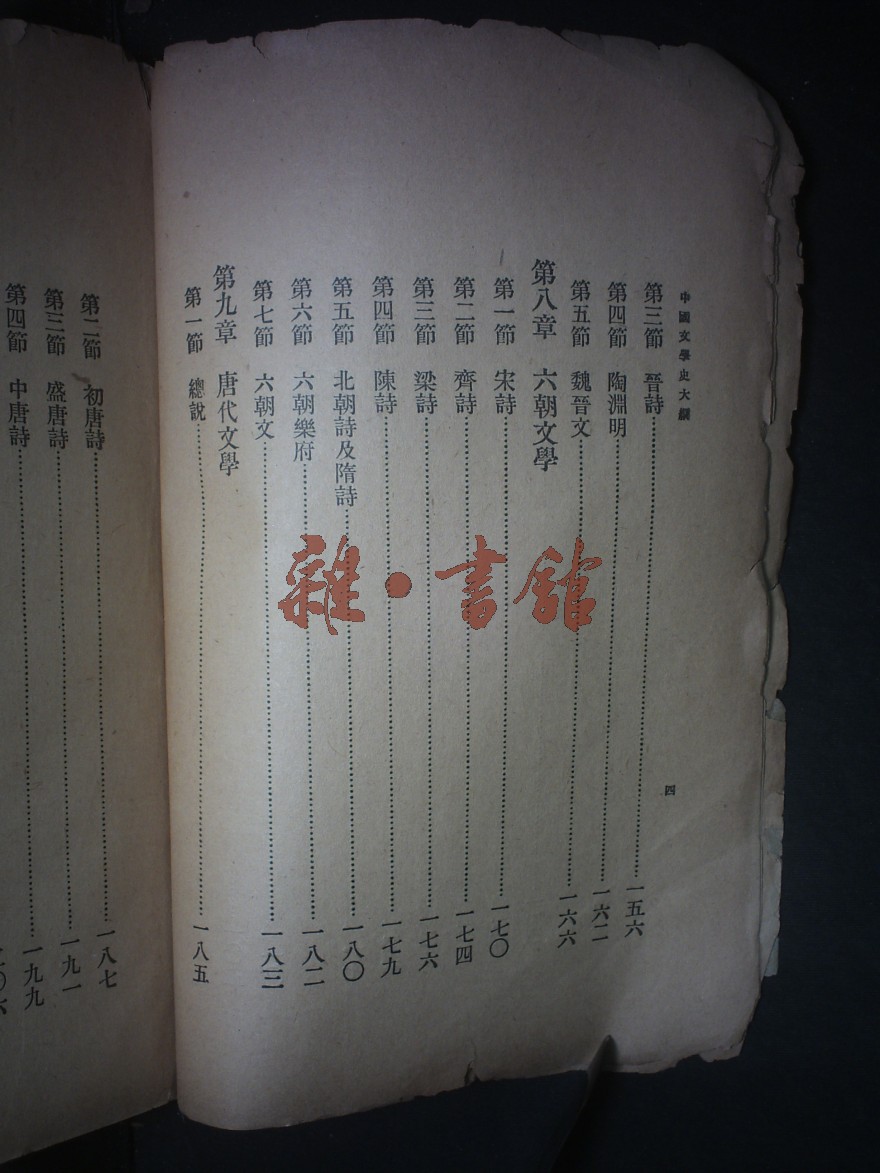 中國文學史大綱
四
第三節 晉詩……一五六
第四節 陶淵明……一六二
第五節 魏晉文……一六六
第八章 六朝文學
第一節 宋詩……一七〇
第二節 齊詩……一七四
第三節 梁詩……一七六
第四節 陳詩……一七九
第五節 北朝詩及隋詩……一八〇
第六節 六朝樂府……一八二
第七節 六朝文……一八三
第九章 唐代文學
第一節 總說……一八五
第二節 初唐詩……一八七
第三節 盛唐詩……一九一
第四節 中唐詩……一九九
雜·書館